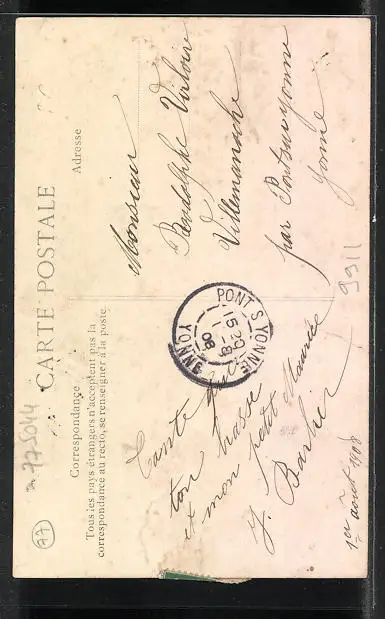 CARTE POSTALE
Correspondance
Tous les pays étrangers n'acceptent pas la
correspondance au recto, se renseigner à la poste.
Adresse
Monsieur
Rodolphe
Villemanoche
par Pontsuryonne
Yonne
PONT S YONNE
15 20
1 - 8
08
YONNE
et mon petit Maurice
J. Barbier
1er août 1908
77
9911